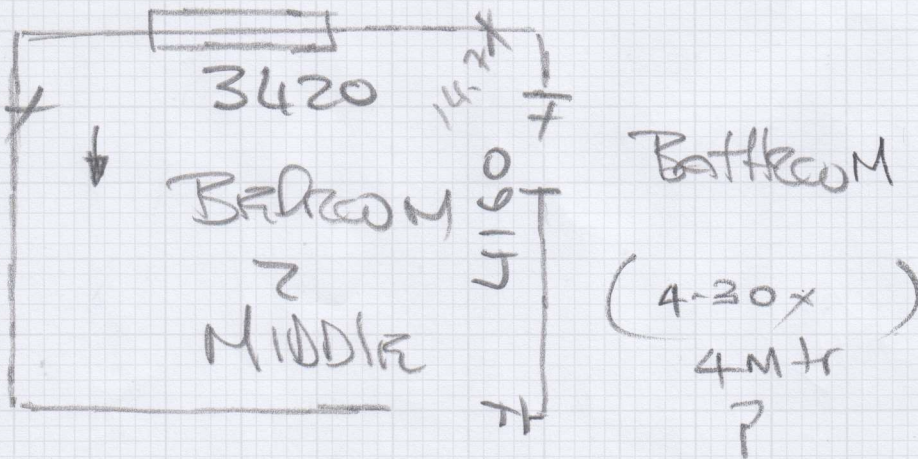 3420
BEDROOM
2
MIDDLE
BATHROOM
(4-30 x
4 Mtr)
?